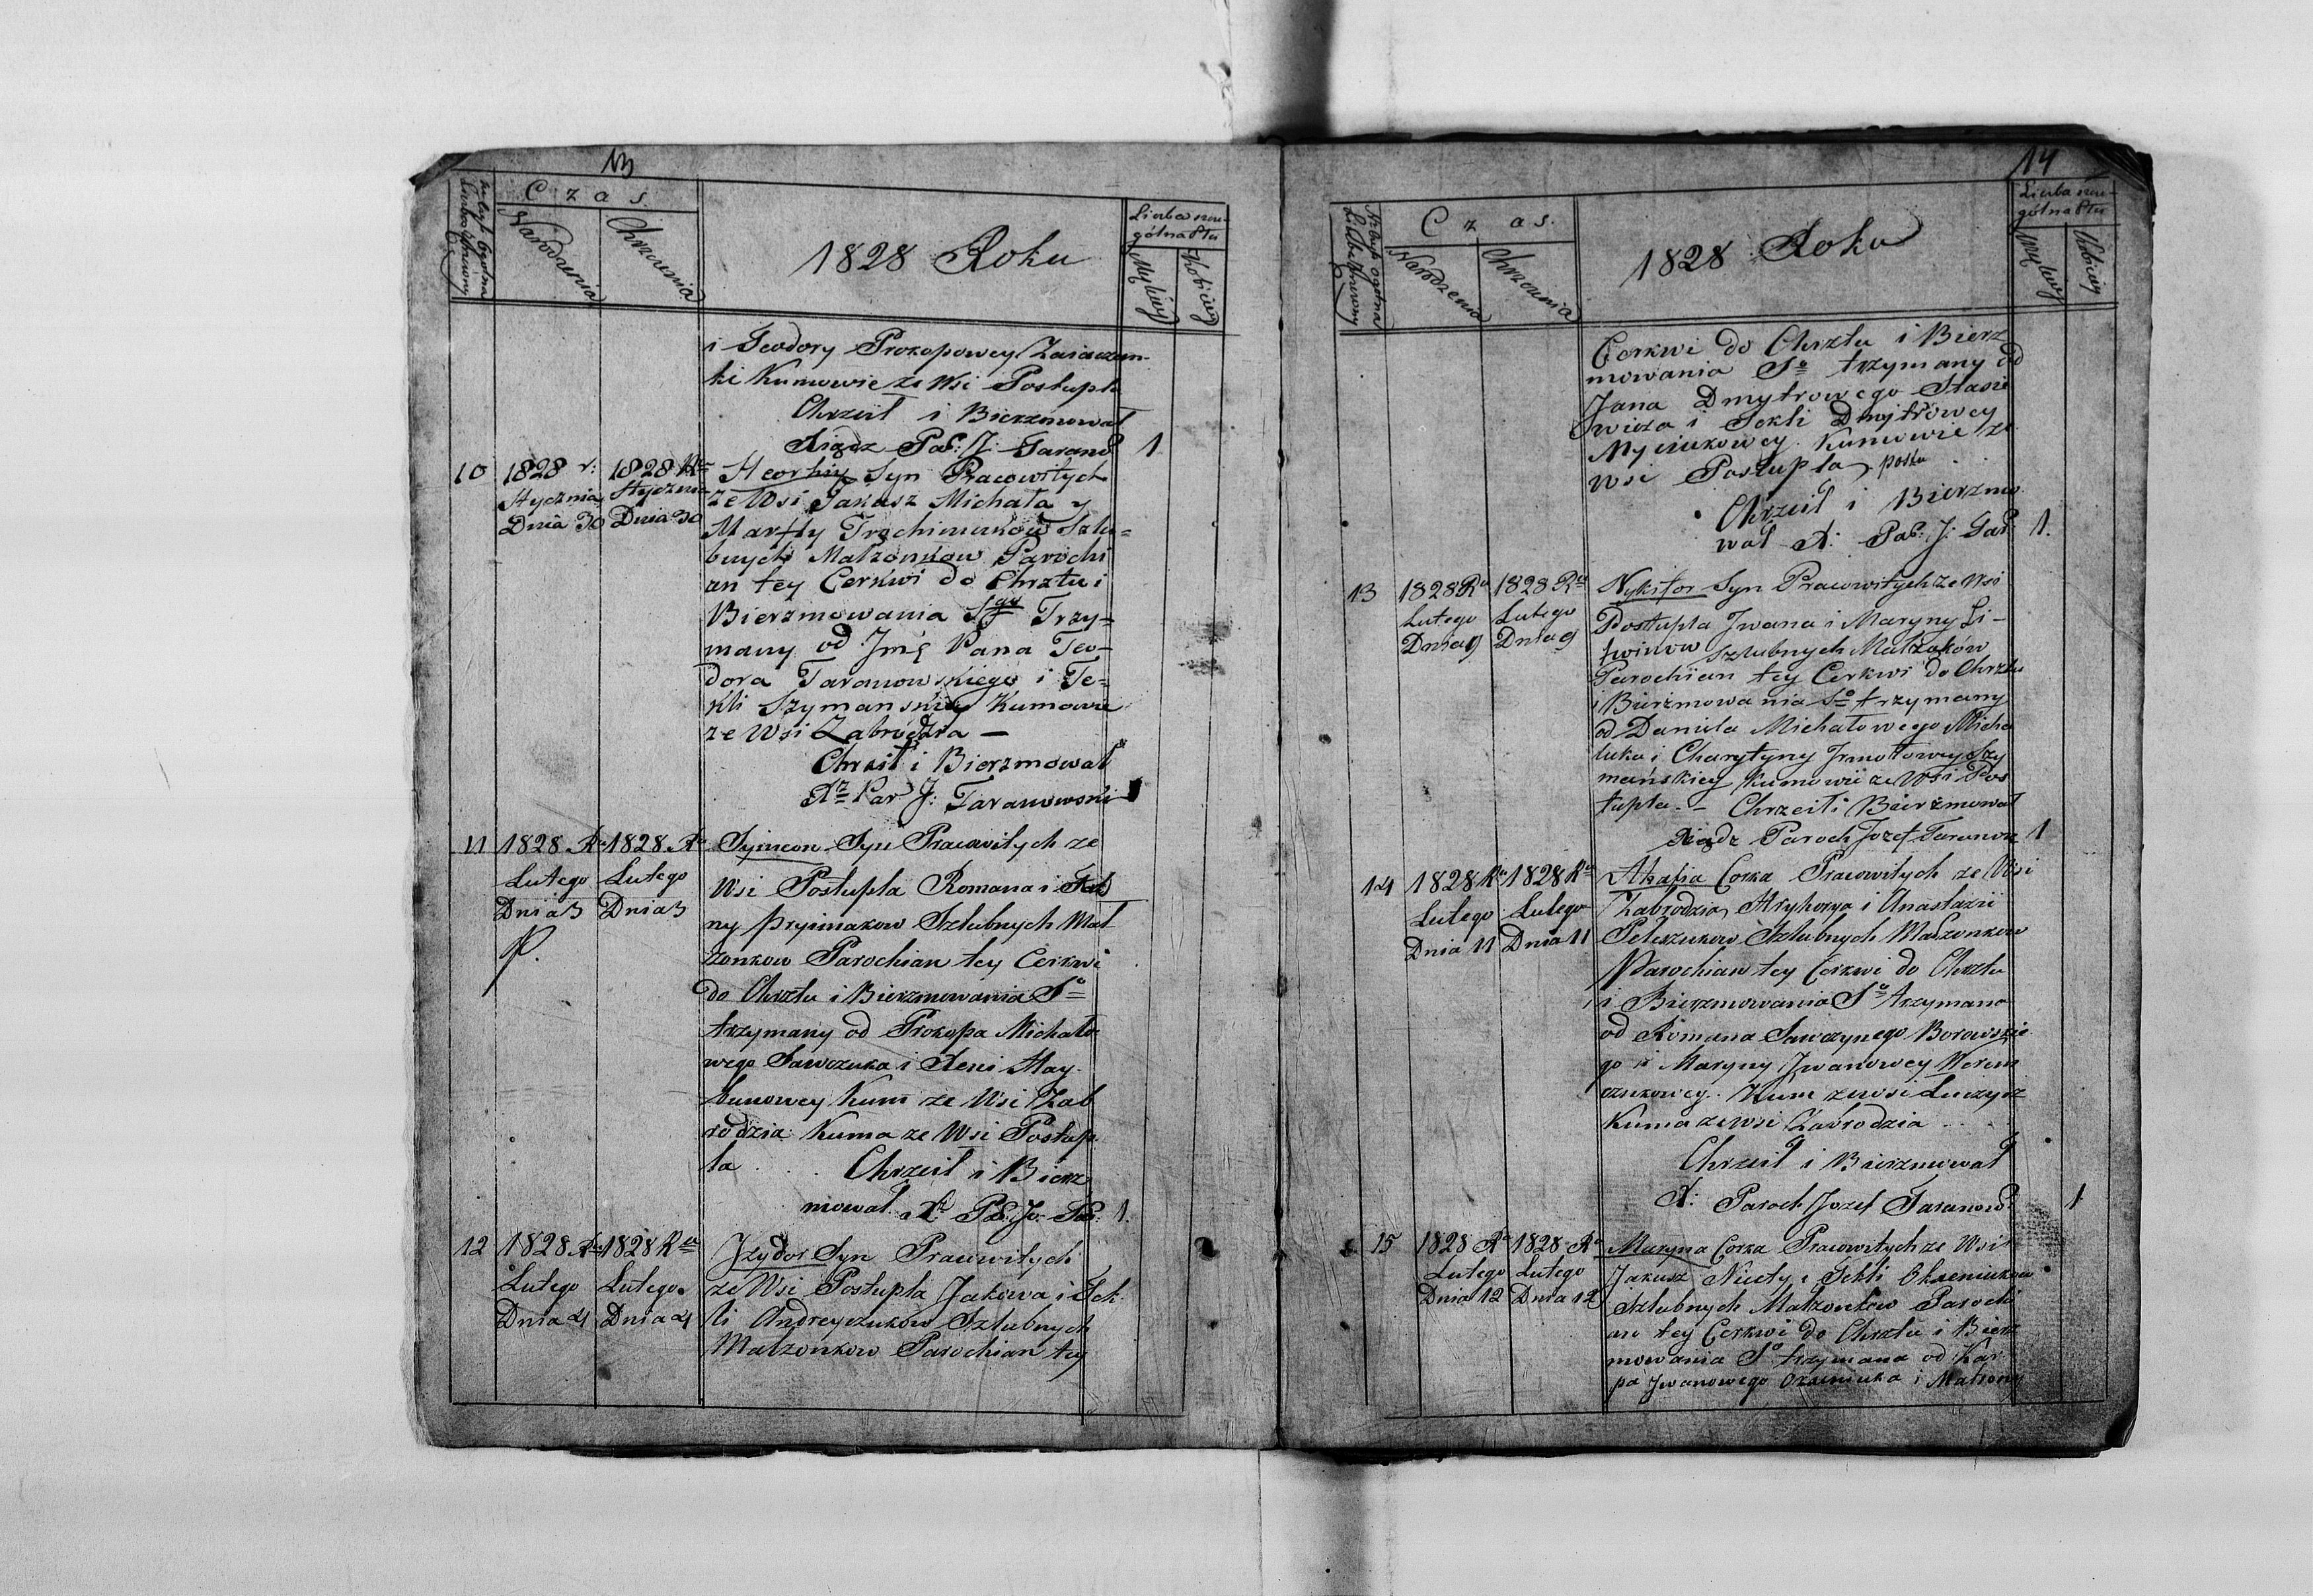 13
C z a s.
Narodzenia
Chrzczenia
1828 Roku
Męzkiey
Kobiecey
i Teodory Prokopowey
ki Kumowie ze Wsi Postupla
Chrzcił i Bierzmował
Xiądz Par: J: Taranow
1
10
1828 r:
Stycznia
Dnia 30
1828 Ru
Stycznia
Dnia 30
Heorhiy Syn Pracowitych
ze Wsi Jakusz Michała y
Marfy Trochimuków Szlu=
bnych Małzonkow Parochi
an tey Cerkwi do Chrztu i
Bierzmowania Sgo Trzy=
many od Jmę Pana Teo-
dora Taranowskiego i Te=
kli Szymanskiey Kumowie
ze Wsi Zabrodzia —
Chrzcił i Bierzmował
Xz Par J: Taranowski
1
11
1828 Ru
Lutego
Dnia 3
P.
1828 Ru
Lutego
Dnia 3
Symeon Syn Pracowitych ze
Wsi Postupla Romana i
ny Pryimakow Szlubnych Mał
zonkow Parochian tey Cerkwi
do Chrztu i Bierzmowania So
trzymany od Prokopa Michało
wego Sawczuka i Xeni Hay-
bunowey Kum ze Wsi Zab
rodzia Kuma ze Wsi Postup
la . . . Chrzcił i Bierz
mował X: Par: Jo: Tar:
1.
12
1828 Ru
Lutego
Dnia 4
1828 Ru
Lutego
Dnia 4
Jzydor Syn Pracowitych
ze Wsi Postupla Jakowa i Tek
li Andreyczukow Szlubnych
Małzonkow Parochian tey
14
C z a s.
Narodzenia
Chrzczenia
1828 Roku
Kobiecey
Cerkwi do Chrztu i Bierz
mowania So trzymany od
Jana Dmytrowego Stasie
wicza i Tekli Dmytrowey
Kumowie ze
Wsi Postupla
Chrzcił i Bierzmo
wał X: Par: J: Tar:
1.
13
1828 Ru
Lutego
Dnia 9
1828 Ru
Lutego
Dnia 9
Nykifor Syn Pracowitych ze Wsi
Postupla Jwana i Maryny Li-
twinow Szlubnych Małzoków
Parochian tey Cerkwi do Chrztu
i Bierzmowania So trzymany
od Daniela Michałowego Micha
luka i Charytyny Jrmołowey Szy
manskiey Kumowie ze Wsi Pos
tupla. — Chrzcił i Bierzmował
Xiądz Paroch Jozef Taranow
1
14
1828 Ru
Lutego
Dnia 11
1828 Ru
Lutego
Dnia 11
Ahafia Corka Pracowitych ze Wsi
Zabrodzia Hryhorya i Anastazii
Peleszukow Szlubnych Małzonkow
Parochian tey Cerkwi do Chrztu
i Bierzmowania So trzymana
od Romana Sawczynego Borowskie
go i Maryny Jwanowey Werem
czukowey. Kum ze wsi Luczycz
Kuma ze wsi Zabrodzia . . .
Chrzcił i Bierzmował
X: Paroch Jozef Taranow
1
15
1828 Ru
Lutego
Dnia 12
1828 Ru
Lutego
Dnia 12
Maryna Corka Pracowitych ze Wsi
Jakusz Nicety i Tekli Okseniukow
Szlubnych Małzonkow Parochi
an tey Cerkwi do Chrztu i Bierz
mowania So trzymana od Kar
pa Jwanowego Oxeniuka i Matrony